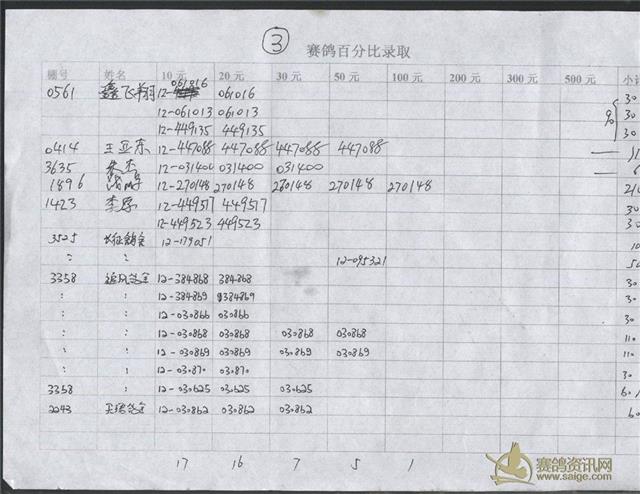 ③
赛鸽百分比录取
棚号 姓名 10元 20元 30元 50元 100元 200元 300元 500元 小计
0561 鑫飞翔 12-061016 061016 30
12-061013 061013 30
12-449135 449135 30
0414 王亚东 12-447088 447088 447088 447088
3635 12-031400 031400 031400
1896 12-270148 270148 270148 270148 270148 210
1423 李 12-449517 449517 30
12-449523 449523 30
3525 12-179051 10
: : 12-095321 50
3358 12-384868 384868 30
: : 12-384869 384869 30
: : 12-030866 030866 30
: : 12-030868 030868 030868 030868 110
: : 12-030869 030869 030869 030869 110
: : 12-030870 030870 30
3358 : 12-030625 030625 030625 60
2043 12-030862 030862 030862 60
17 16 7 5 1
赛鸽资讯网
www.saige.com